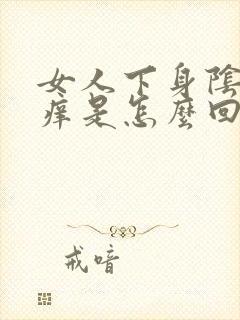 女人下身陰
痒是怎麼回
戒喑